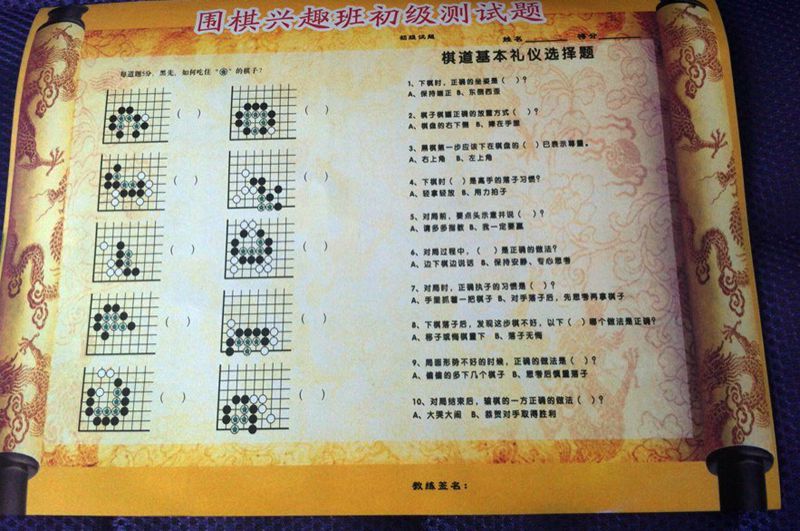 围棋兴趣班初级测试题
初级试题 姓名 得分
每道题5分，黑先，如何吃住“ ”的棋子？
( ) ( )
( ) ( )
( ) ( )
( ) ( )
( ) ( )
棋道基本礼仪选择题
1、下棋时，正确的坐姿是（ ）？
A、保持端正 B、东倒西歪
2、棋子棋罐正确的放置方式（ ）？
A、棋盘的右下侧 B、捧在手里
3、黑棋第一步应该下在棋盘的（ ）已表示尊重。
A、右上角 B、左上角
4、下棋时（ ）是高手的落子习惯？
A、轻拿轻放 B、用力拍子
5、对局前，要点头示意并说（ ）？
A、请多多指教 B、我一定要赢
6、对局过程中，（ ）是正确的做法？
A、边下棋边说话 B、保持安静、专心思考
7、对局时，正确执子的习惯是（ ）？
A、手里抓着一把棋子 B、对手落子后，先思考再拿棋子
8、下棋落子后，发现这步棋不好，以下（ ）哪个做法是正确？
A、移子或悔棋重下 B、落子无悔
9、局面形势不好的时候，正确的做法是（ ）？
A、偷偷的多下几个棋子 B、思考后慎重落子
10、对局结束后，输棋的一方正确的做法（ ）？
A、大哭大闹 B、恭贺对手取得胜利
教练签名：